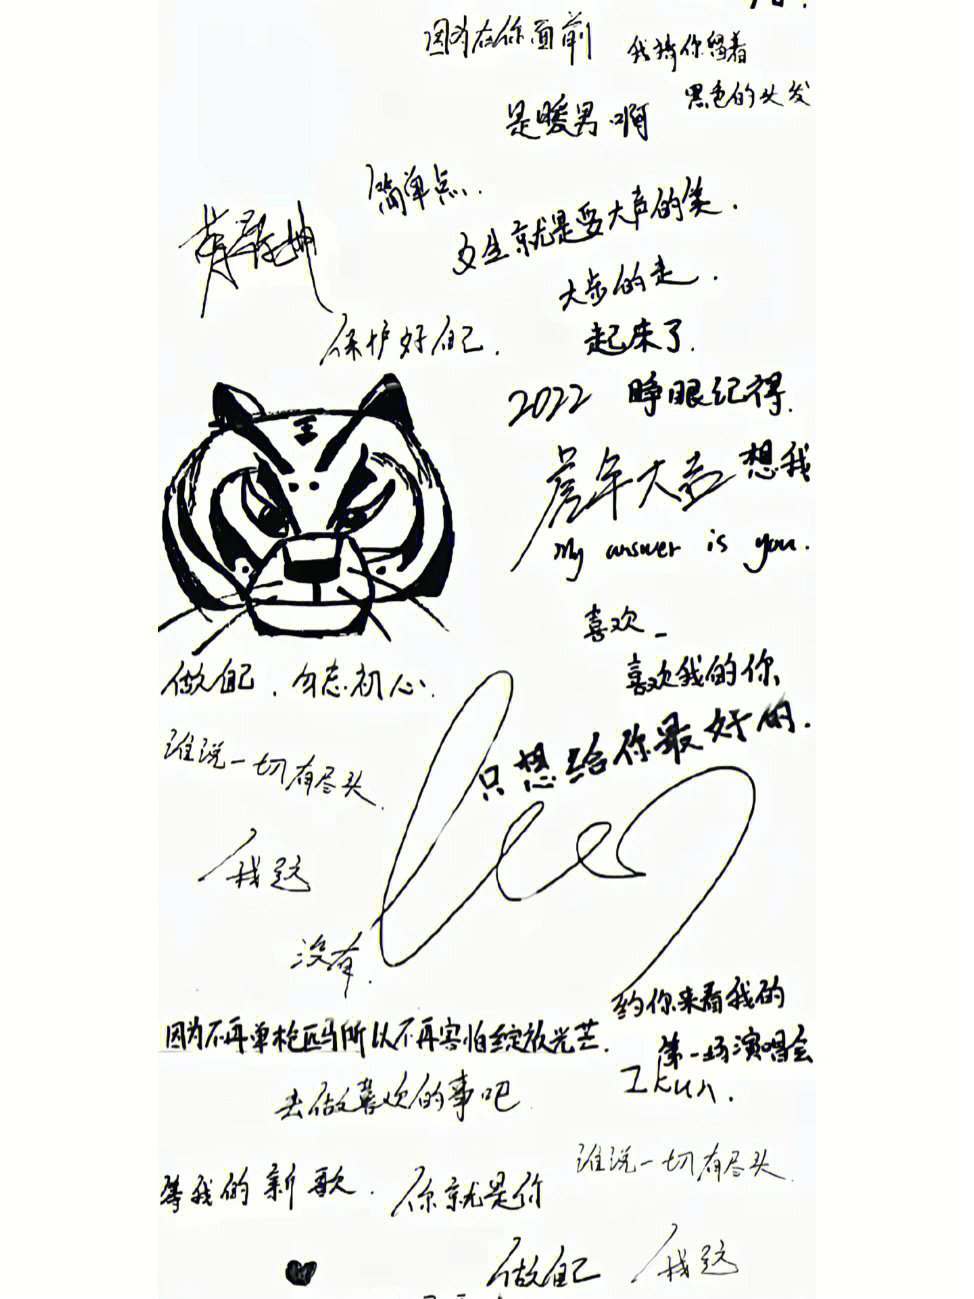 因为在你面前
我猜你留着
黑色的头发
是暖男啊
简单点、
女生就是要大声的笑.
大步的走.
保护好自己.
起床了.
2022 睁眼记得.
想我
虎年大吉
My answer is you.
王
喜欢_
喜欢我的你
做自己、勿忘初心.
只想给你最好的.
谁说一切有尽头.
我这
没有.
约你来看我的
第一场演唱会
因为不再单枪匹马所以不再害怕绽放光芒.
Ikun.
去做喜欢的事吧
谁说一切有尽头.
等我的新歌. 你就是你
做自己 我这